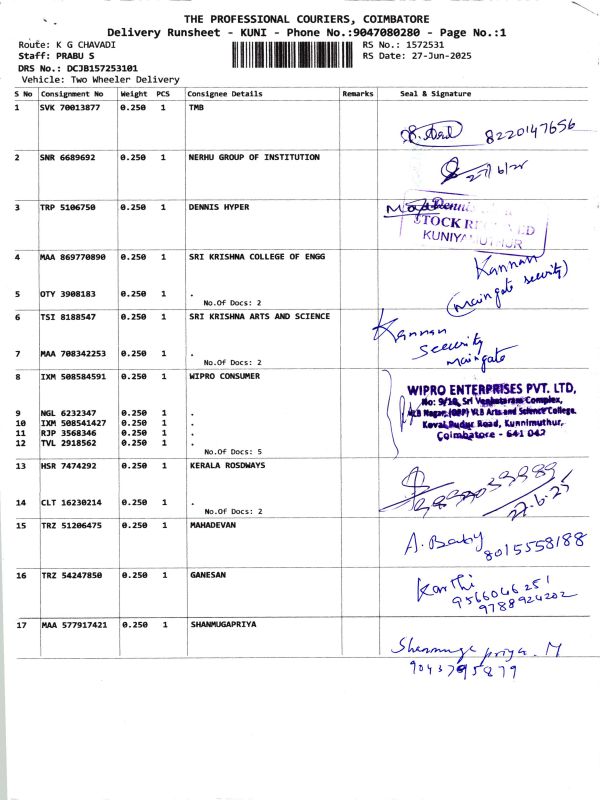 THE PROFESSIONAL COURIERS, COIMBATORE
Delivery Runsheet - KUNI - Phone No.:9047080280 - Page No.:1
Route: K G CHAVADI RS No.: 1572531
Staff: PRABU S RS Date: 27-Jun-2025
DRS No.: DCJB157253101
Vehicle: Two Wheeler Delivery
S No Consignment No Weight PCS Consignee Details Remarks Seal & Signature
1 SVK 70013877 0.250 1 TMB
8220147656
2 SNR 6689692 0.250 1 NERHU GROUP OF INSTITUTION
27/6/25
3 TRP 5106750 0.250 1 DENNIS HYPER
Dennis
STOCK RECEIVED
KUNIYAMUTHUR
4 MAA 869770890 0.250 1 SRI KRISHNA COLLEGE OF ENGG
Kannan
(maingate security)
5 OTY 3908183 0.250 1 .
No.Of Docs: 2
6 TSI 8188547 0.250 1 SRI KRISHNA ARTS AND SCIENCE
Kannan
security
maingate
7 MAA 708342253 0.250 1 .
No.Of Docs: 2
8 IXM 508584591 0.250 1 WIPRO CONSUMER
WIPRO ENTERPRISES PVT. LTD,
No: 9/10, Sri Venkataram Complex,
VLB Nagar, (OPP) VLB Arts and Science College.
Kovai Pudur Road, Kunnimuthur,
Coimbatore - 641 042
9 NGL 6232347 0.250 1 .
10 IXM 508541427 0.250 1 .
11 RJP 3568346 0.250 1 .
12 TVL 2918562 0.250 1 .
No.Of Docs: 5
13 HSR 7474292 0.250 1 KERALA ROSDWAYS
27.6.25
14 CLT 16230214 0.250 1 .
No.Of Docs: 2
15 TRZ 51206475 0.250 1 MAHADEVAN
A. Baby
8015558188
16 TRZ 54247850 0.250 1 GANESAN
Karthi
9566046251
9788924202
17 MAA 577917421 0.250 1 SHANMUGAPRIYA
Shanmuga priya. M
9043795879